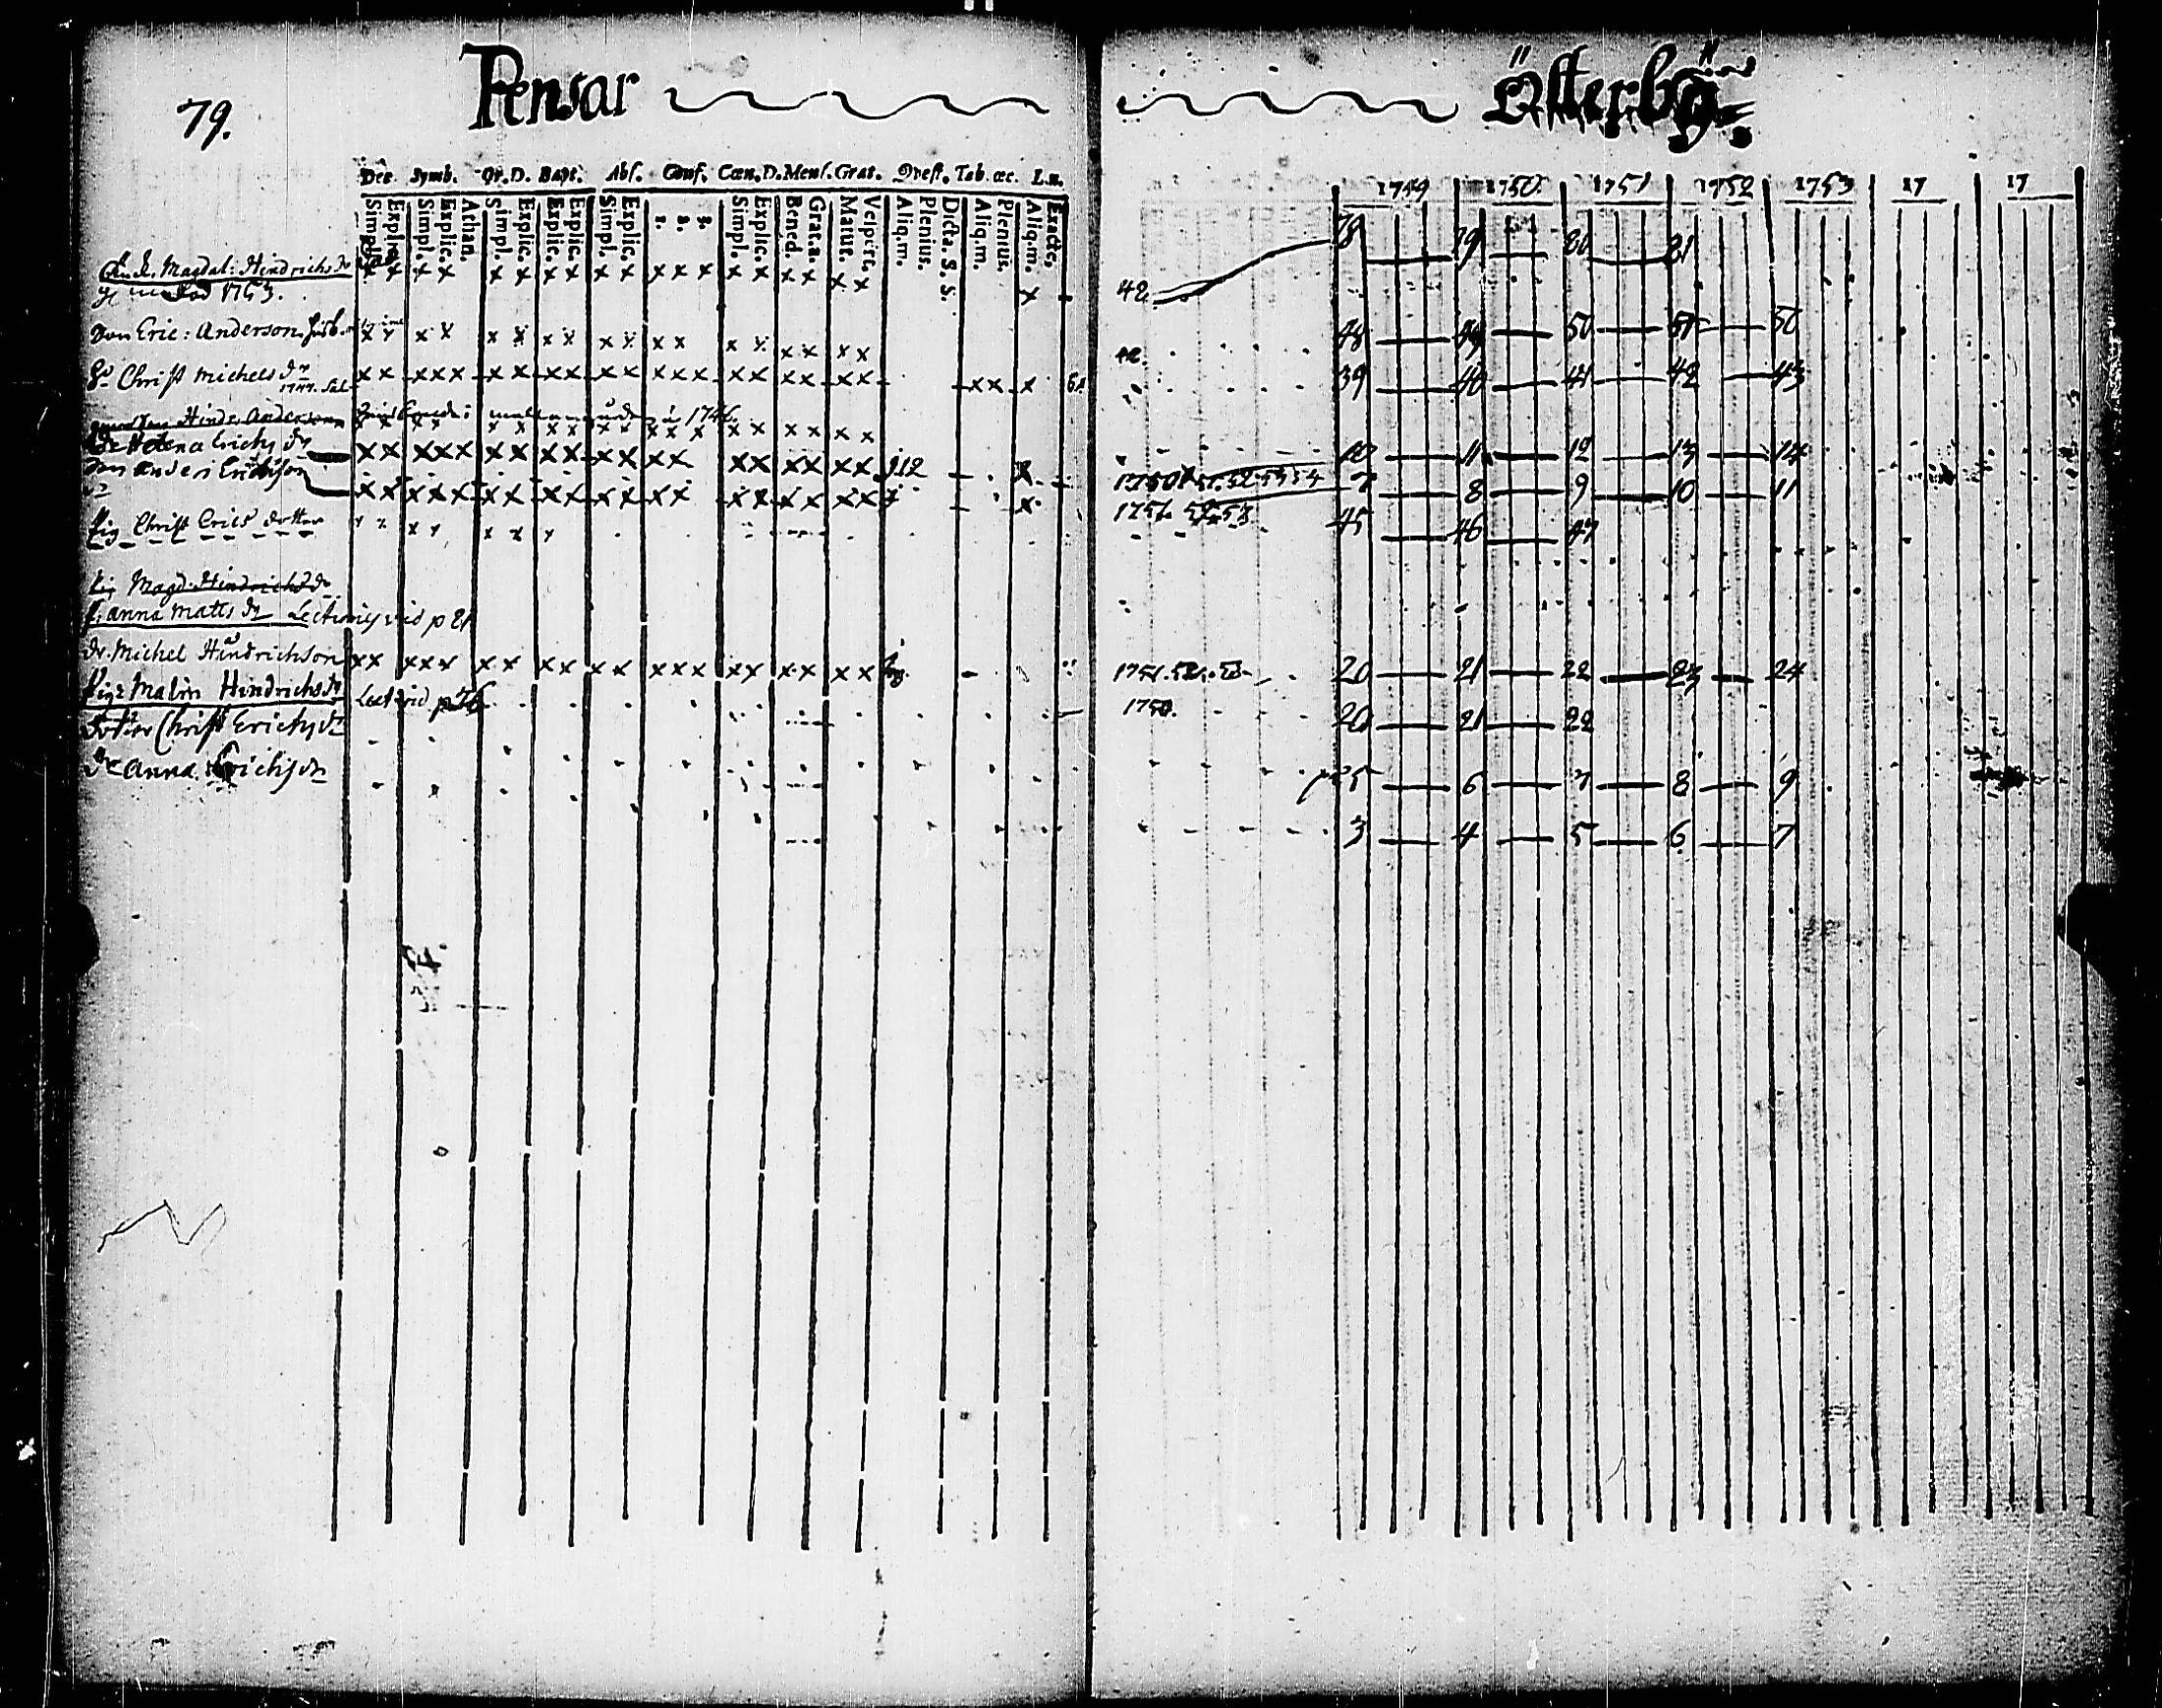 79.
Pensar
Österby
Dec. Symb. Or.D. Bapt. Abs. Conf. Cœn.D. Mens. Grat. Qvest. Tab. œc. L.n.
Simpl. Explic. Simpl. Explic. Athan. Simpl. Explic. Explic. Explic. Simpl. Explic. 1. 2. 3. Simpl. Explic. Bened. Grat.a. Matut. Vespert. Aliq.m. Plenius. Dicta. S. S. Aliq.m. Plenius. Aliq.m. Exacte.
1749 1750 1751 1752 1753 17 17
Magdal: Hindrichs dr x x x x x x x x x x x x x x x x x x x
1753. x
42 78 79 80 81
Don Eric: Anderson x x x x x x x x x x x x x x x x x x
48 49 50 51 50
Christ Michels dr x x x x x x x x x x x x x x x x x x x x x x x
39 40 41 42 43
Hindr Anderson 1746
Helena Erichs dr x x x x x x x x x x x x x x x x x x x 112 x
10 11 12 13 14
Don Anders Erichson x x x x x x x x x x x x x x x x x x x x
7 8 9 10 11
Pig Christ Erics dotter x x x x x x x
45 46 47
Pig Magd. Hindrichs dr
P. anna Matts dr Lectionis vid p 81
Dr. Michel Hindrichson x x x x x x x x x x x x x x x x x x x x
1751. 52. 53 20 21 22 23 24
Pig: Malin Hindrichs dr Lect vid p 76
1750. 20 21 22
Dotter Christ Erichs dr
5 6 7 8 9
Dr Anna Erichs dr
3 4 5 6 7